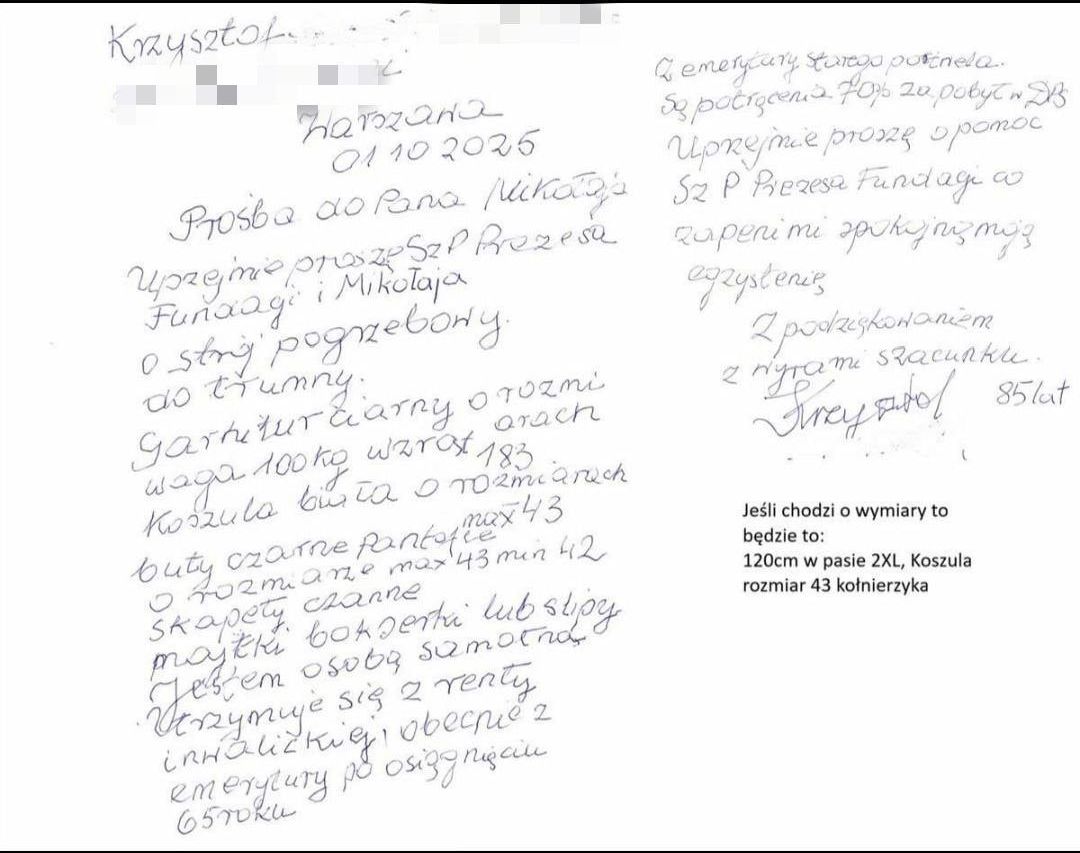 Krzysztof
Warszawa
01 10 2025
Prośba do Pana Mikołaja
Uprzejmie proszę Sz P Prezesa
Fundagi i Mikołaja
o strój pogrzebowy.
do trumny.
Garnitur czarny o rozmi
arach
waga 100kg wzrost 183
Koszula biała o rozmiarach
max 43
buty czarne Pantofle
o rozmiarze max 43 min 42
skapety czarne
majtki bokserki lub slipy
Jestem osobą samotną
Utrzymuje się z renty
inwalickiej, obecnie z
emerytury po osiągnięciu
65 roku
Z emerytury starego portfela.
Są potrącenia 70% za pobyt w DPS
Uprzejmie proszę o pomoc
Sz P Prezesa Fundagi co
zapeni mi spokojną moją
egzystenię
Z podziękowaniem
z wyrami szacunku.
Krzysztof 85 lat
Jeśli chodzi o wymiary to
będzie to:
120cm w pasie 2XL, Koszula
rozmiar 43 kołnierzyka